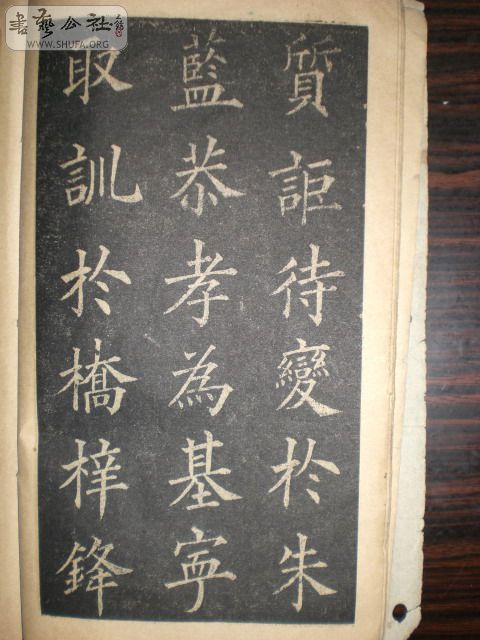 書藝公社
WWW.SHUFA.ORG
質詎待變於朱
藍恭孝為基寧
取訓於橋梓鋒